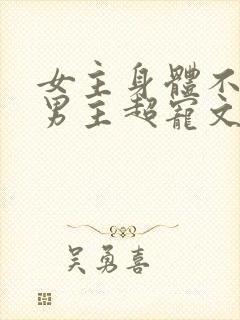 女主身體不
男主超寵文
吴勇喜